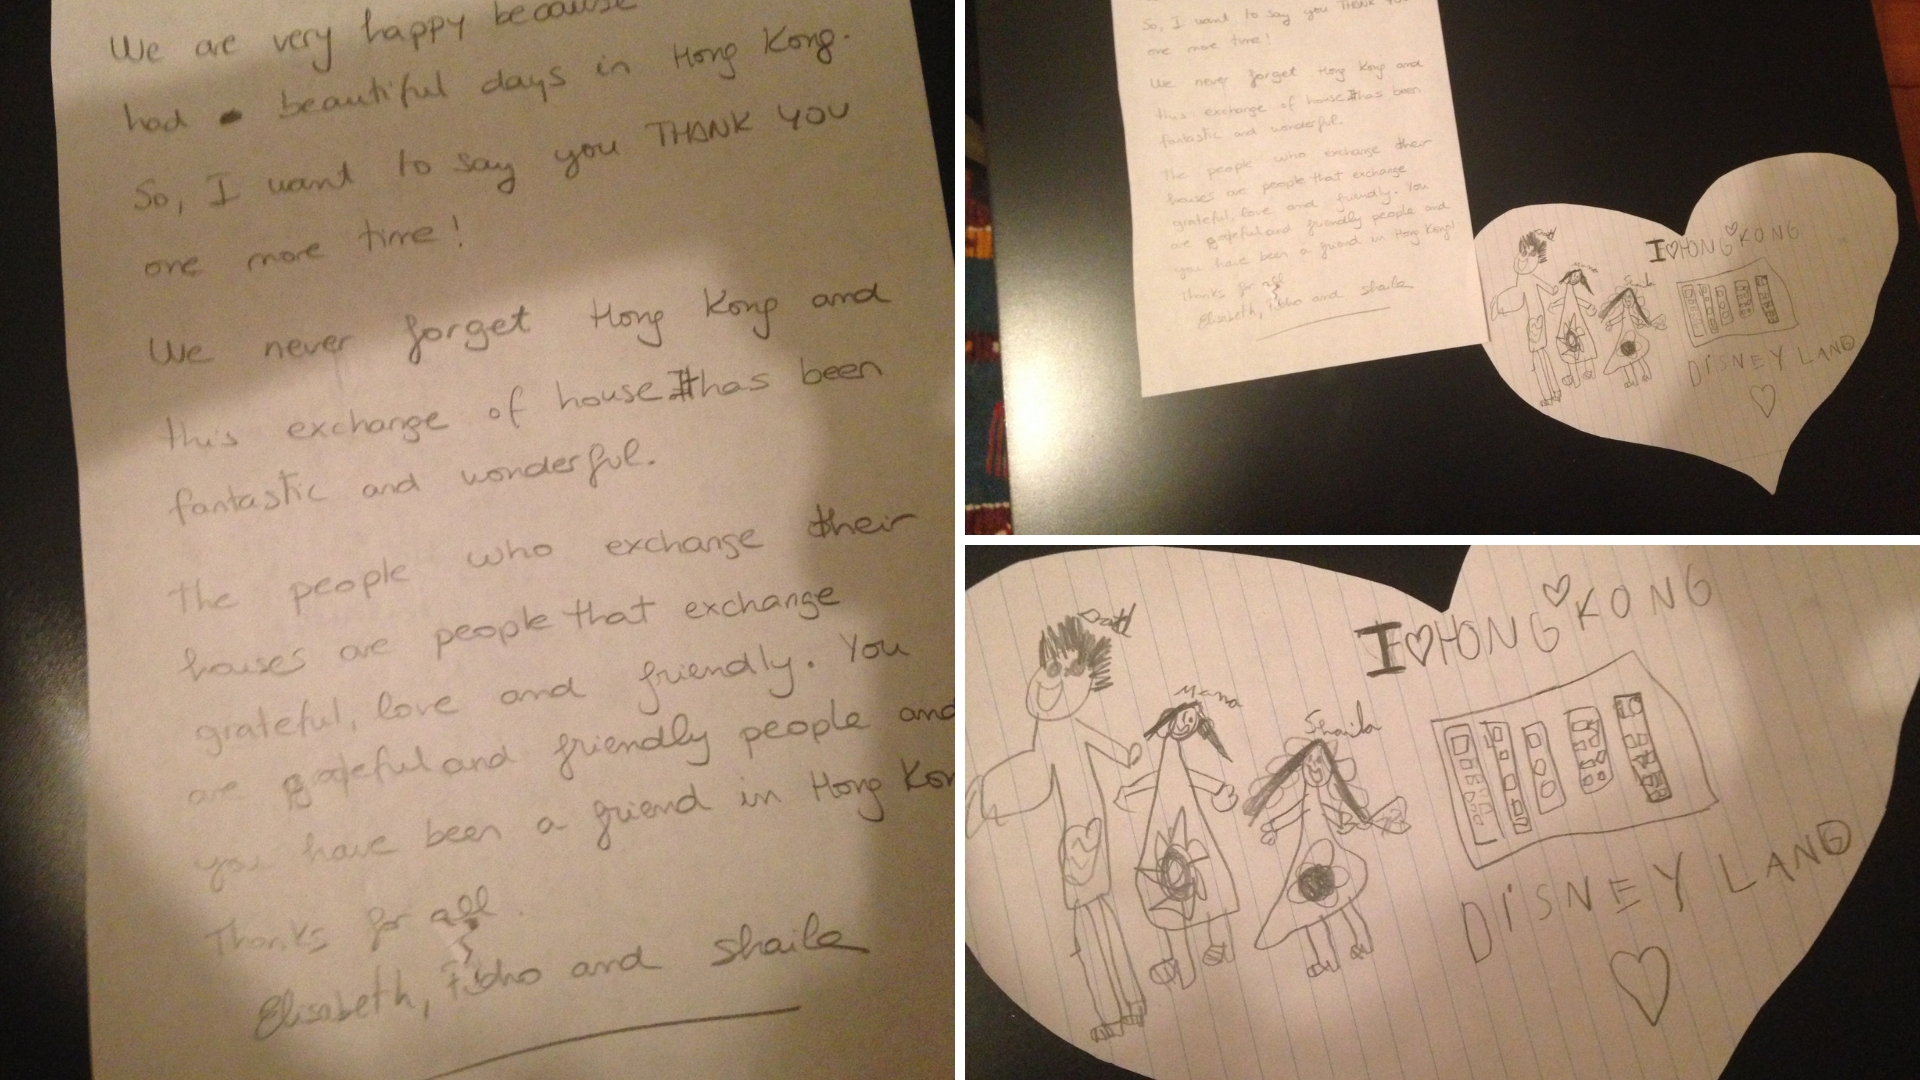 We are very happy because
had beautiful days in Hong Kong.
So, I want to say you THANK YOU
one more time!
We never forget Hong Kong and
this exchange of house It has been
fantastic and wonderful.
The people who exchange their
houses are people that exchange
grateful, love and friendly. You
are grateful and friendly people and
you have been a friend in Hong Kon
Thanks for all.
Elisabeth, and Shaila
So, I want to say you THANK YOU
one more time!
We never forget Hong Kong and
this exchange of house It has been
fantastic and wonderful.
The people who exchange their
houses are people that exchange
grateful, love and friendly. You
are grateful and friendly people and
you have been a friend in Hong Kong!
Thanks for all
Elisabeth, and Shaila
I ♡ HONG KONG
Shaila
DISNEY LAND
I ♡ HONG KONG
Mama
Shaila
DiSNEY LAND